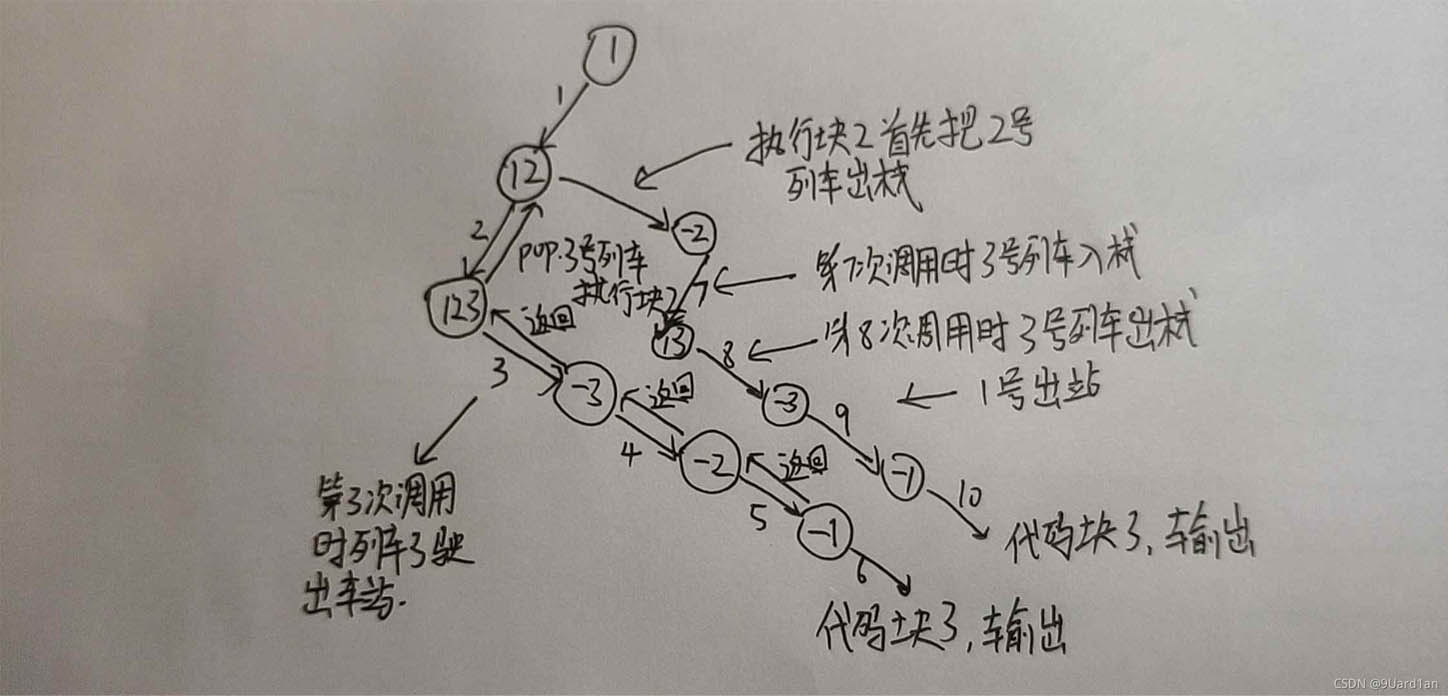 1
1
12
执行块2首先把2号
列车出栈
2
pop.3号列车
执行块2
-2
123
返回
7
第7次调用时3号列车入栈
13
8
第8次周用时3号列车出栈
3
-3
返回
-3
9
1号出站
4
-2
返回
-1
10
第3次调用
时列车3驶
出车站.
5
-1
6
代码块3,输出
代码块3,输出
CSDN @9Uard1an